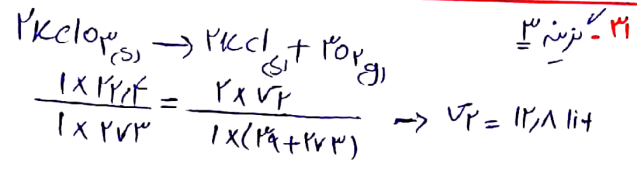 ۳۱ - گزینه ۳
۲KClO۳(s) → ۲KCl(s) + ۳O۲(g)
۱ × ۲۲٫۴ / ۱ × ۲۷۳ = ۲ × V۲ / ۱ × (۳۹ + ۲۷۳) → V۲ = ۱۲٫۸ lit